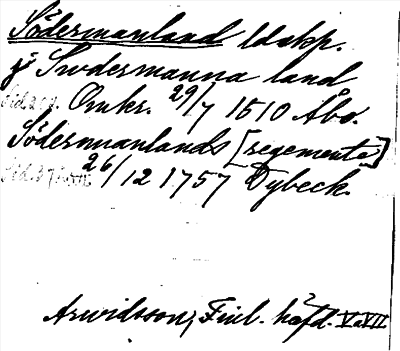 Södermanland ldskp.
j Swdermanna land
Omkr. 29/7 1510 Åbo.
Södermanlands [regemente]
26/12 1757 Dybeck.
Arwidsson, Finl. häfd. V o VII